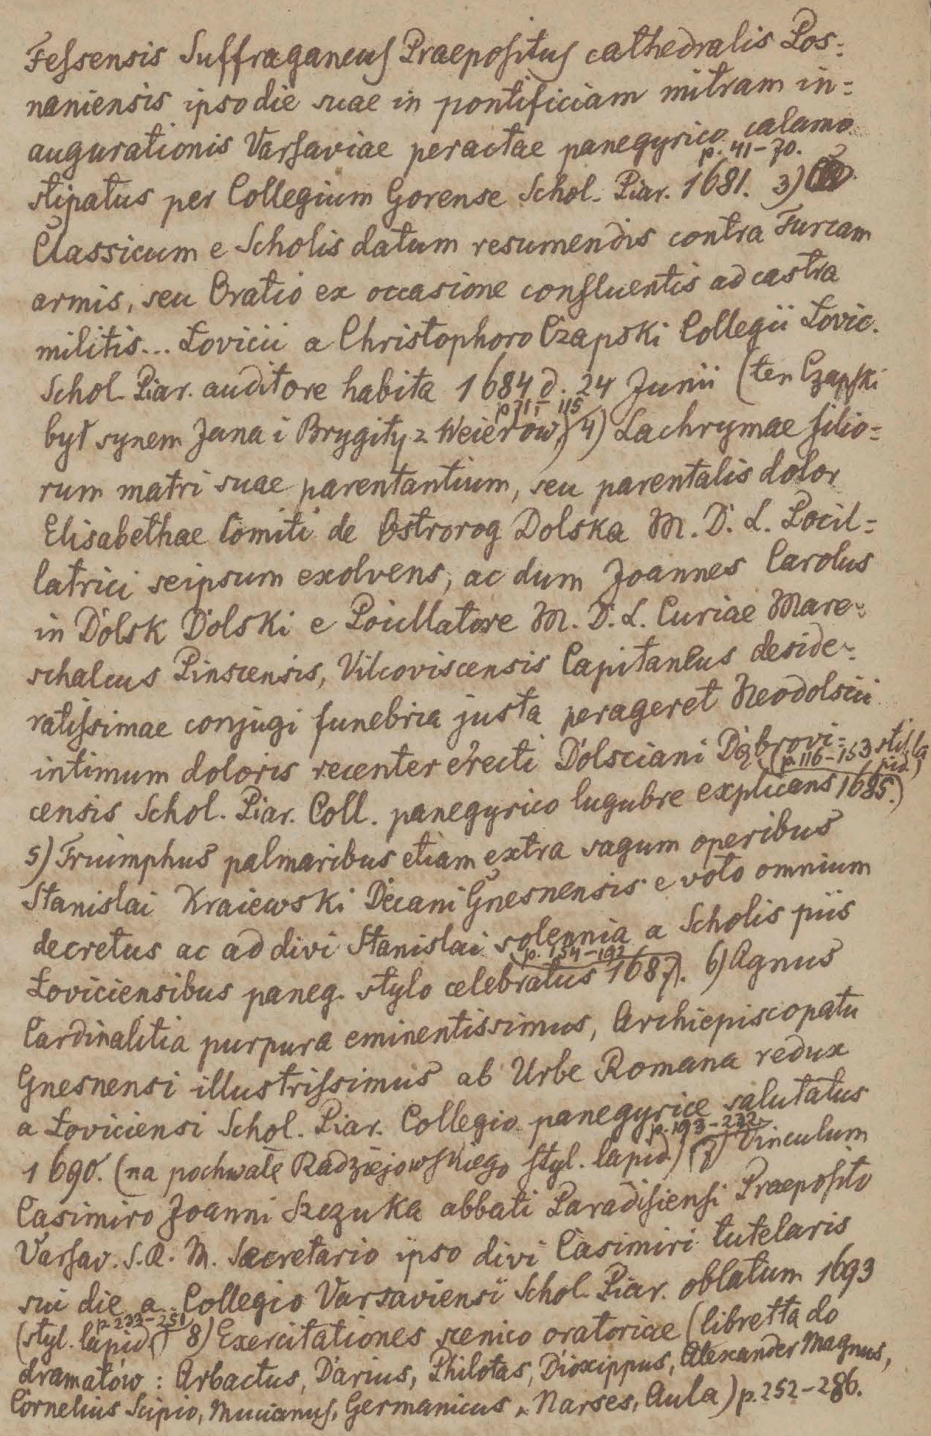 Fessensis Suffraganeus Praepositus cathedralis Pos=
naniensis ipso die suae in pontificiam mitram in=
augurationis Varsaviae peractae panegyrico calamo
p. 41-70.
stipatus per Collegium Gorense Schol. Piar. 1681. 3)
Classicum e Scholis datum resumendis contra Turcam
armis, seu Oratio ex occasione confluentis ad castra
militis... Lovicii a Christophoro Czapski Collegii Lovic.
Schol. Piar. auditore habita 1684 d. 24 Junii (ten Czapski
p 71-115
był synem Jana i Brygity z Weierów) 4) Lachrymae filio=
rum matri suae parentantium, seu parentalis dolor
Elisabethae Comiti de Ostrorog Dolska M. D. L. Pocil=
latrici seipsum exolvens, ac dum Joannes Carolus
in Dolsk Dolski e Pocillatore M. D. L. Curiae Mare=
schalcus Pinscensis, Vilcoviscensis Capitaneus deside=
ratissimae conjugi funebria justa perageret Neodolscii
intimum doloris recenter erecti Dolsciani Dąbrovi=
(p. 116-153, styl. lapid.)
censis Schol. Piar. Coll. panegyrico lugubre explicans 1685.)
5) Triumphus palmaribus etiam extra sagum operibus
Stanislai Kraiewski Decani Gnesnensis e voto omnium
decretus ac ad divi Stanislai solennia a Scholis piis
p. 154-192
Loviciensibus paneg. stylo celebratus 1687. 6) Agnus
Cardinalitia purpura eminentissimus, Archiepiscopatu
Gnesnensi illustrissimus ab Urbe Romana redux
a Loviciensi Schol. Piar. Collegio panegyrice salutatus
p. 193-232
1690. (na pochwałę Radziejowskiego styl. lapid.) 7) Vinculum
Casimiro Joanni Szczuka abbati Paradisiensi Praeposito
Varsav. S. R. M. Secretario ipso divi Casimiri tutelaris
sui die a Collegio Varsaviensi Schol. Piar. oblatum 1693
p. 233-251
(styl. lapid.) 8) Exercitationes scenico oratoriae (libretta do
dramatów: Arbactus, Darius, Philotas, Dioxippus, Alexander Magnus,
Cornelius Scipio, Mucianus, Germanicus, Narses, Aula) p. 252-286.